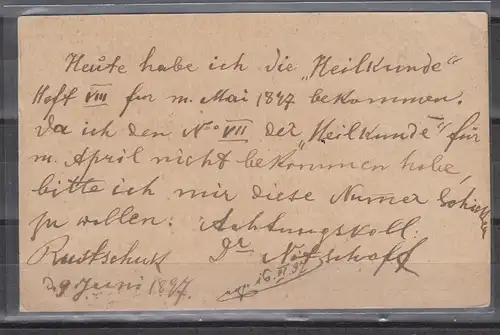 Heute habe ich die „Heilkunde“
Heft VIII fur m. Mai 1897 bekommen.
Da ich den No VII der „Heilkunde“ fur
m. April nicht bekommen habe,
bitte ich mir diese Numer schicken
zu wollen. Achtungsvoll:
Rustschuk Dr
16 VI 97
d. 9 Juni 1897.